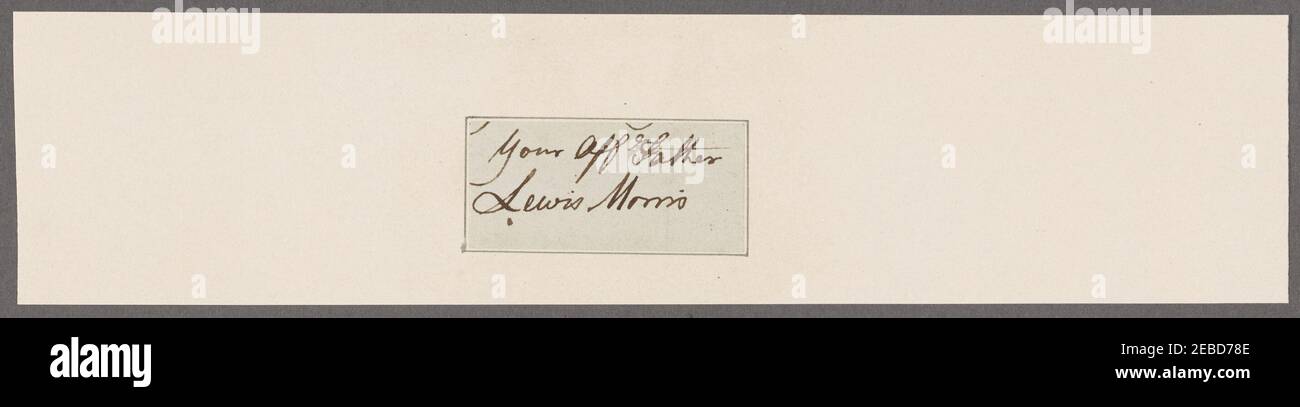 Your Aff.e Father
Lewis Morris
alamy
Image ID: 2EBD78E
www.alamy.com